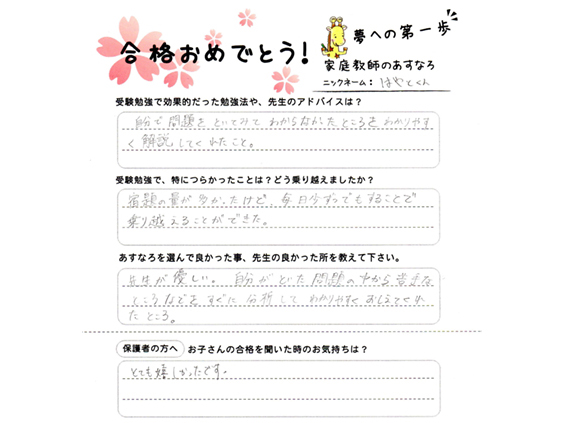 合格おめでとう!
夢への第一歩
家庭教師のあすなろ
ニックネーム： はやとくん
受験勉強で効果的だった勉強法や、先生のアドバイスは？
自分で問題をといてみてわからなかったところをわかりやす
く解説してくれたこと。
受験勉強で、特につらかったことは？どう乗り越えましたか？
宿題の量が多かったけど、毎日少しずつでもすることで
乗り越えることができた。
あすなろを選んで良かった事、先生の良かった所を教えて下さい。
先生が優しい。自分がといた問題の中から苦手な
ところなどをすぐに分析してわかりやすくおしえてくれ
たところ。
保護者の方へ お子さんの合格を聞いた時のお気持ちは？
とても嬉しかったです。